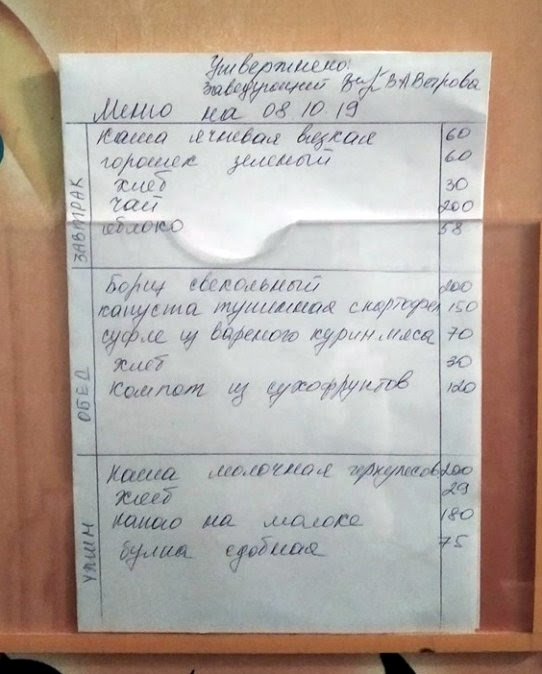 Утверждено:
Заведующий В.А.Ветрова
Меню на 08 10 19
ЗАВТРАК
Каша ячневая вязкая 60
горошек зеленый 60
хлеб 30
чай 200
яблоко 58
ОБЕД
Борщ свекольный 200
капуста тушинная с картофел 150
суфле из вареного курин.мяса 70
хлеб 30
компот из сухофруктов 120
УЖИН
Каша молочная геркулесов 200
хлеб 29
какао на молоке 180
булка сдобная 75